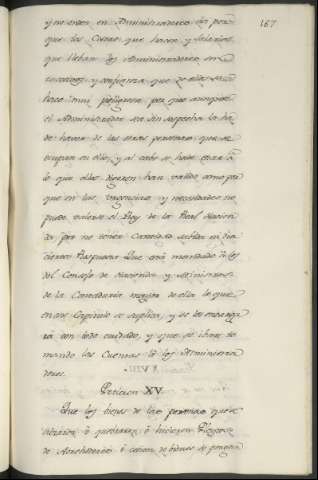 167
y menten en Administradores por
que las Cuentas que hacen y
que llevan los Administradores en
y confianza que de ellos se
hace mui peligrosa por que aunque
el Administrador sea sin sospecha la ha
de haver de las otras personas que se
ocupan en ello, y al cabo se hade estar à
lo que ellos dixeren han valido como por
que en las urgencias y necesidades no
puede valerse el Rey de la Real Hacien
da por no tener Cantidad
ciertas Respuesta Que està mandado à los
del Consejo de Hacienda y Ministros
de la Contaduria mayor de ella lo que
en este Capitulo se suplica, y se les encarga
rà con todo cuidado, y que se iban to
mando las Cuentas à los Administra
dores.
Peticion XV
Que los bienes de las personas que se
ò quebraren ò hicieren Pleyto
de Acrehedores ò cesion de bienes se pongan